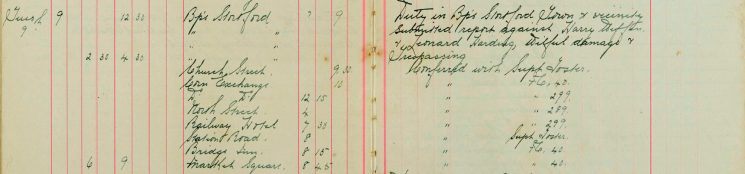 Tues. 9 12 30 Bp's Stortford ? 9 Duty in Bp's Stortford Town & vicinity
9 " " Submitted report against Harry
" " & Leonard Harding, wilful damage &
2 30 4 30 Trespassing
Church Street. 9 30 Conferred with Supt Foster.
Corn Exchange 10 " P.C. 40.
12 15 " " 299.
North Street 4 " " 289.
Railway Hotel 7 30 " " 299
Station Road. 8 " Supt Foster.
Bridge Inn. 8 15 " P.C. 40
6 9 Market Square. 8 45 " " 40.